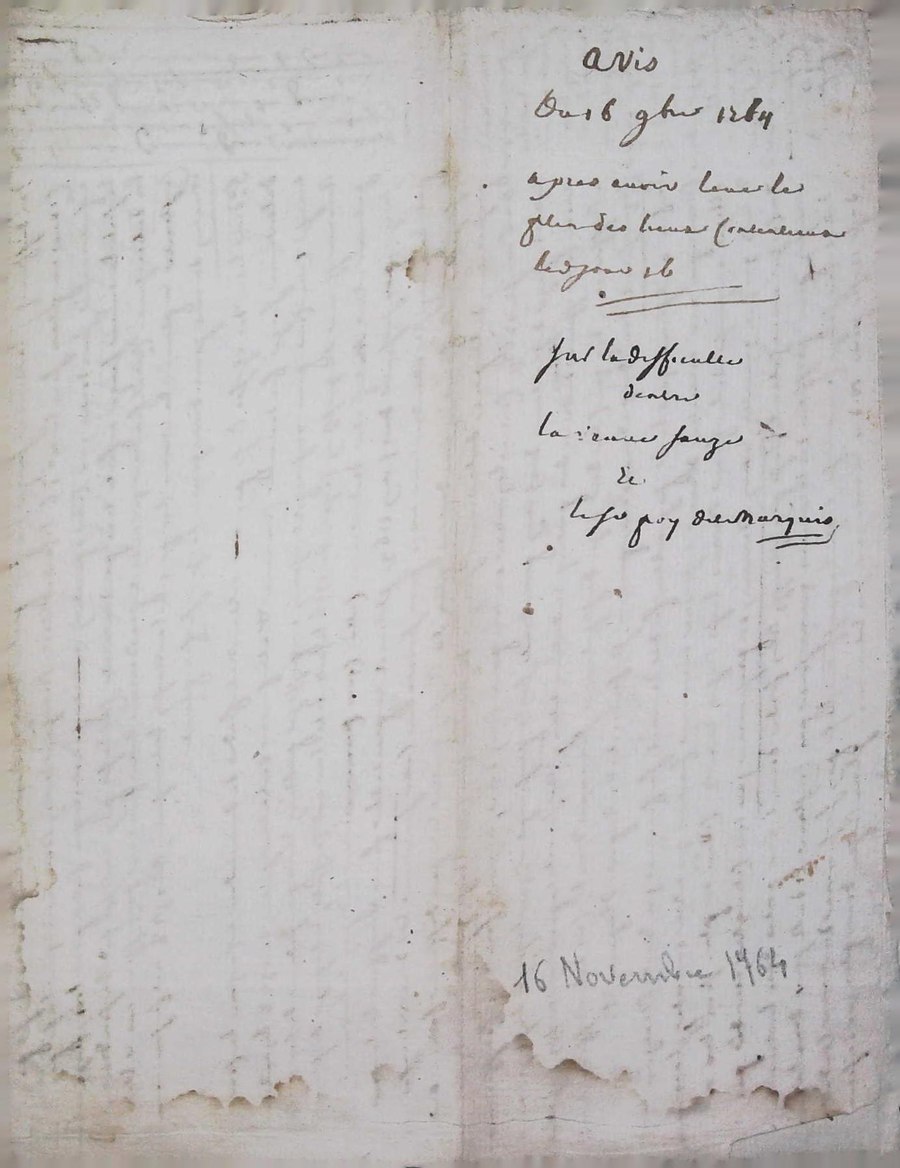 avis
Du 16 9bre 1764
apres avoir leve le
plan des lieux Contentieux
led jour 16
sur la difficulté
dentre
la veuve Sauze
Et
le sr poy dit Marquis
16 Novembre 1764